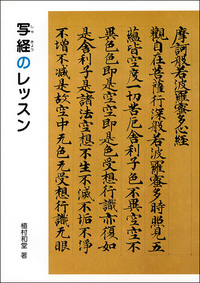 写経のレッスン
植村和堂 著
摩訶般若波羅蜜多心経
観自在菩薩行深般若波羅蜜多時照見五
蘊皆空度一切苦厄舎利子色不異空空不
異色色即是空空即是色受想行識亦復如
是舎利子是諸法空想不生不滅不垢不浄
不増不減是故空中無色无受想行識无眼